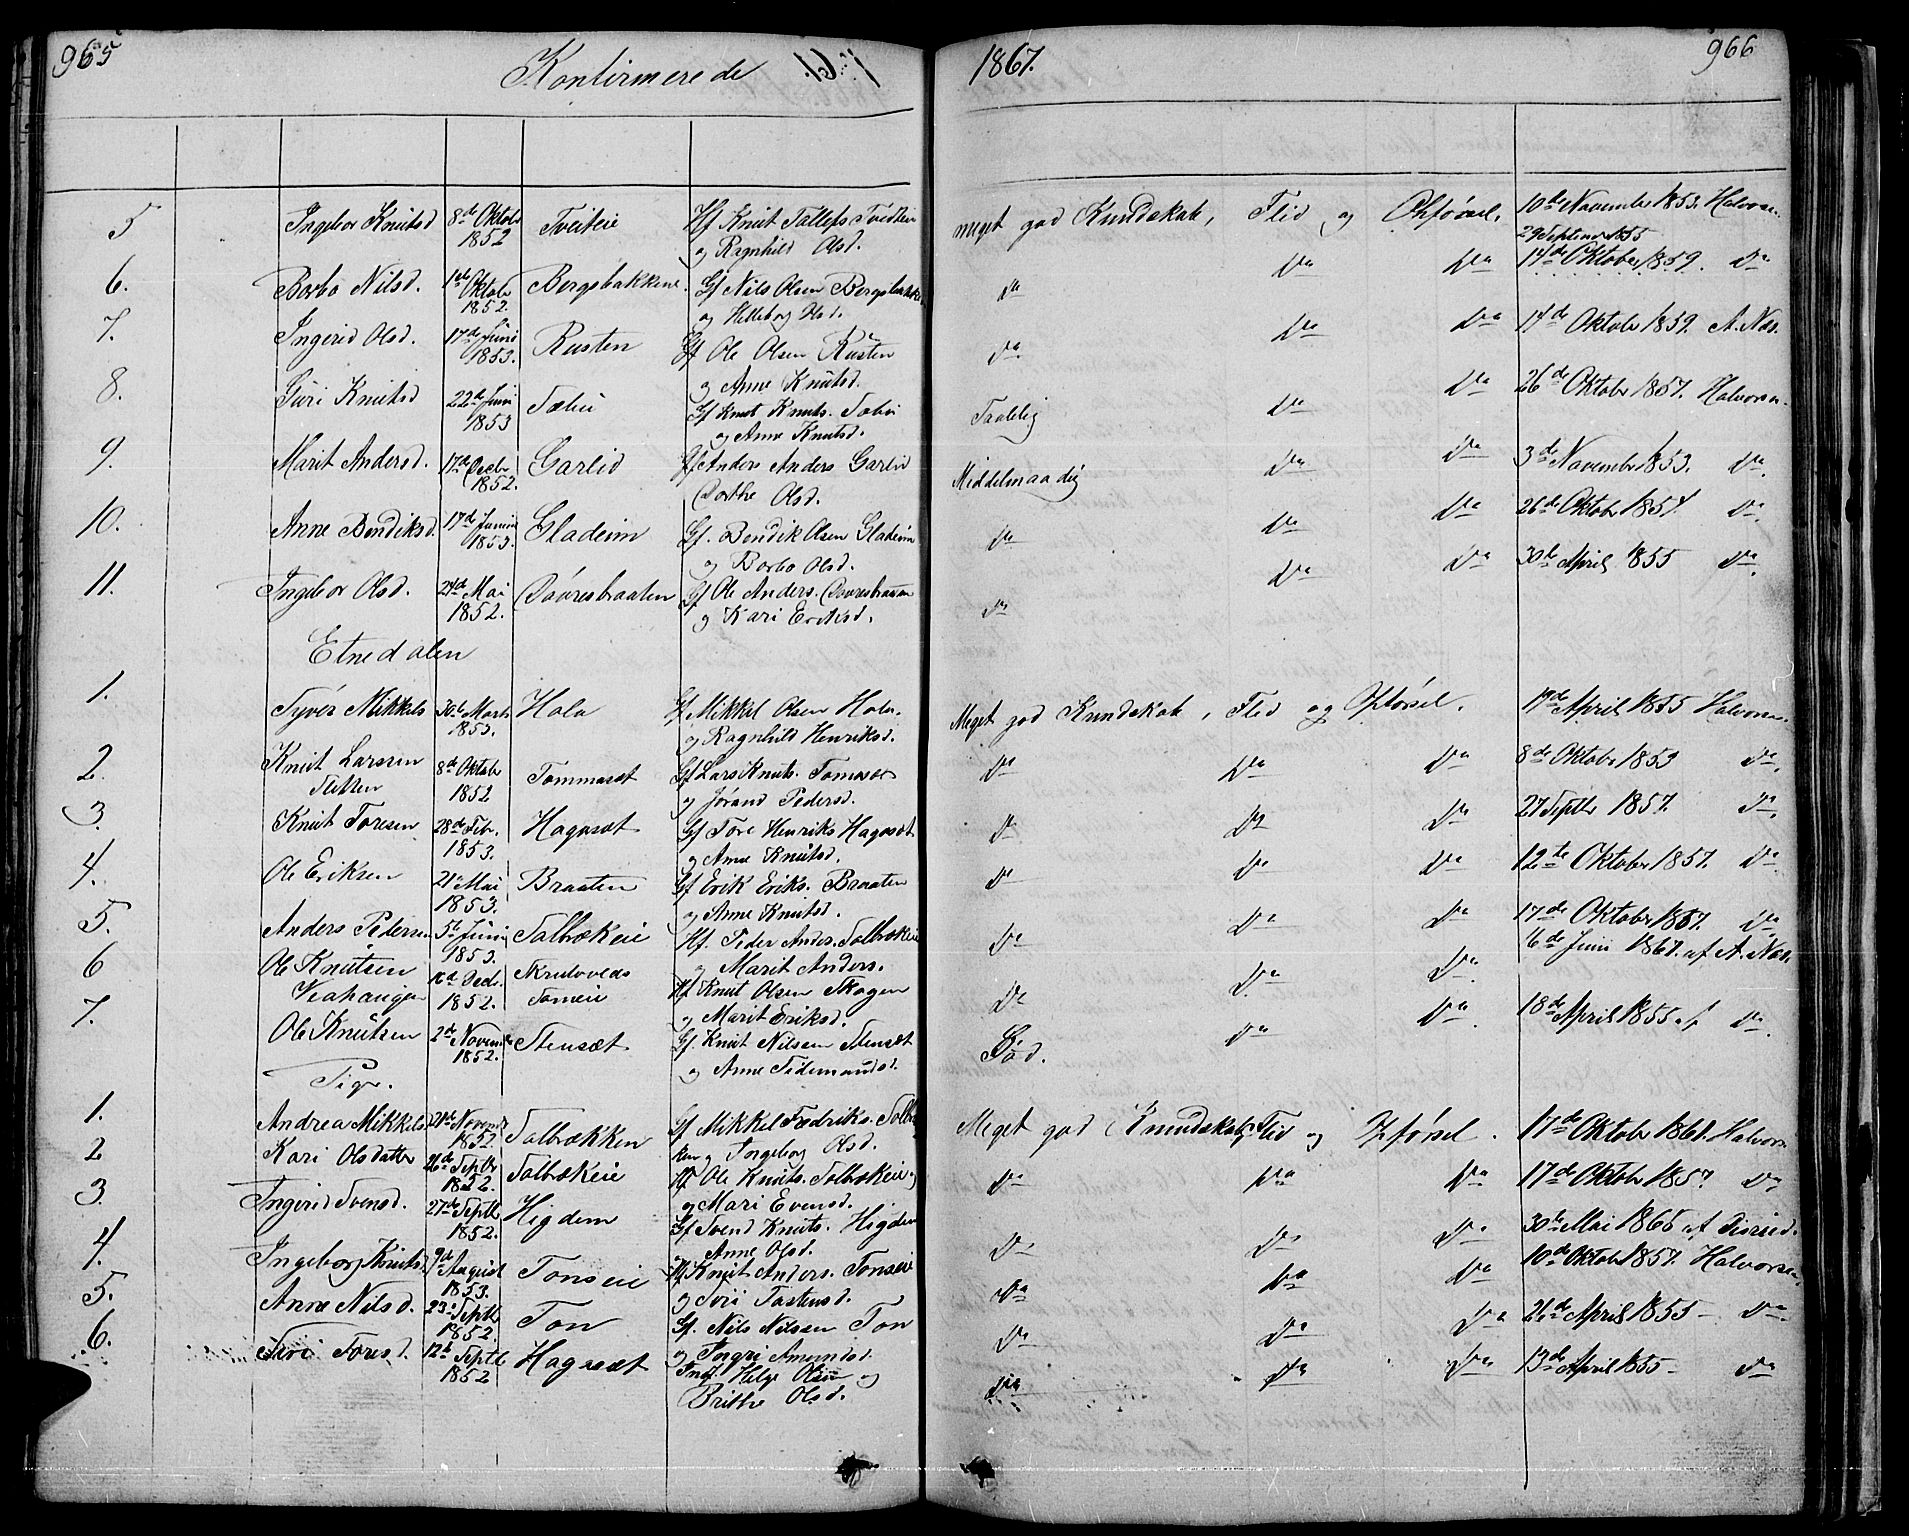 965
Konfirmerede
1867.
966
5 Ingebor Knutsd 8de Oktob 1852 Tveiteie Hf Knut Tallefs Tveiteie
og Ragnhild Olsd. meget god Kundskab, Flid og Opførsel. 10de November 1853. Halvorsen
29 September 1855
6. Borbo Nilsd. 1ste Oktob 1852. Bergsbakkene. Gf Nils Olsen Bergsbakken
og Helleborg Olsd. Do Do Do 14de Oktober 1859. Do
7. Ingerid Olsd. 17de Juni 1853. Rusten Gf Ole Olsen Rusten
og Anne Knutsd. Do. Do Do 14de Oktober 1859. A. Næs.
8. Guri Knutsd 22de Juni 1853 Sæbu Gf Knut Knuts. Sæbu
og Anne Knutsd. Taalelig Do Do 26de Oktober 1857. Halvorsen
9. Marit Andersd. 17de Decbr 1852. Garlid Gf Anders Anders Garlid
Dorthe Olsd. Middelmaadig Do Do 3de November 1853. Do
10. Anne Bendiksd. 17de Junii 1853. Gladeim Gf. Bendik Olsen Gladeim
og Borbo Olsd. Do Do Do 26de Oktober 1857. Do.
11. Ingebor Olsd. 24de Mai 1852. Dovresbraaten Gf Ole Anders. Dovresbraaten
og Kari Eriksd. Do Do Do 30te April 1855 Do.
Etnedalen
1. Syver Mikkels 30te Marts 1853. Hola Gf Mikkel Olsen Hola.
og Ragnhild Henriksd. Meget god Kundskab, Flid og Opførsel. 17de April 1855 Halvorsen
2. Knut Larssen Sletten 8de Oktober 1852 Tommaset Gf Lars Knuts. Tomaset
og Jørand Pedersd. Do Do Do 8de Oktober 1853 Do.
3. Knut Toresen 28de Febr. 1853. Hagaset Gf Tore Henriks Hagaset
og Anne Knutsd. Do Do Do 27 Septbr 1857. Do.
4. Ole Eriksen 21de Mai 1853. Braaten Gf Erik Eriks. Braaten
og Anne Knutsd. Do Do Do 12te Oktober 1857. Do
5. Anders Pedersen 5te Juni 1853. Solbrækeie Hf. Peder Anders. Solbrækeie
og Marit Anders. Do Do Do 17de Oktober 1857. Do
6 Ole Knutsen 16de Decbr. 1852. Hf Knut Olsen Skogen
og Marit Eriksd. Do Do Do. 16de Juni 1867. af A. Næs.
7. Ole Knutsen 2de Novem 1852. Stensæt Gf. Knut Nilssen Stensæt
og Anne Tidemandsd. God. Do Do. 18de April 1855 af Do.
Pige.
1. Andrea Mikkels 21de Novemb 1852. Solbrækken Gf Mikkel Fredriks. Solbræk
ken og Ingeborg Olsd. Meget god Kundskab, Flid og Opførsel. 17de Oktober 1861. Halvorsen
2 Kari Olsdatter 26de Septbr 1852. Solbrækeie Hf Ole Knuts. Solbrækeie
og Mari Evensd. Do Do Do 17de Oktober 1857 Do
3. Ingerid Svensd. 27de Septbr 1852. Higdem Gf Svend Knuts. Higdem
Anne Olsd. Do Do Do 30te Mai 1865 af
4. Ingeborg Knutsd. 9de August 1853. Tonseie Hf Knut Anders. Tonseie
og Do Do Do 10de Oktober 1857. Halvorsen,
5. Anne Nilsd. 23de Septbr 1852. Ton Gf. Nils Nilssen Ton
og Ingri Amundsd. Do Do Do 26de April 1855 – Do
6. Toresd. 12te Septbr 1852 Hagaset Helge Olsen og
Brithe Olsd. Do Do Do 13de April 1855 – Do